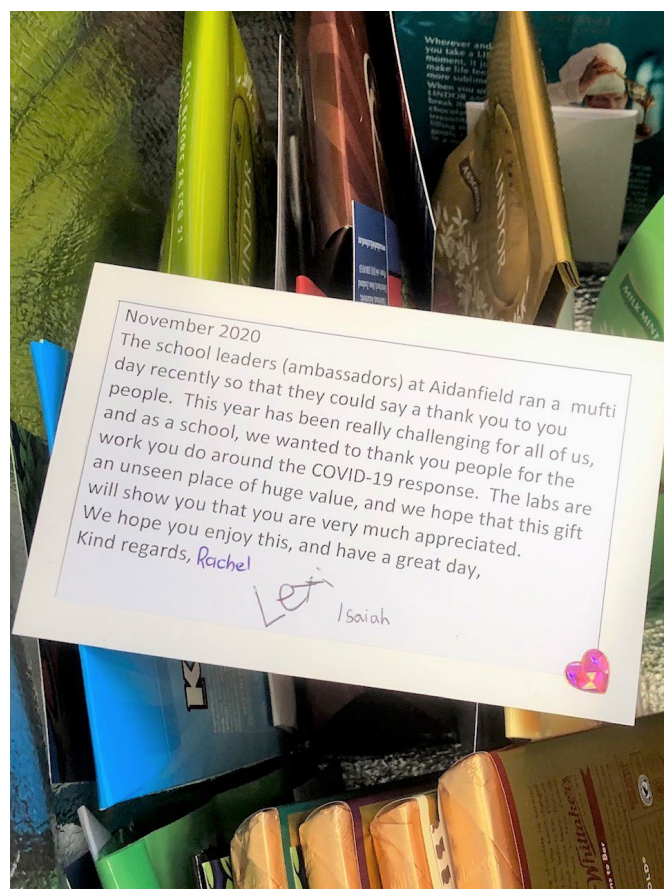 Wherever and
you take a LIN
moment, it ju
make life fee
more sublime
When you u
LINDOR
LINDOR
LINDOR
MILK MINT
November 2020
The school leaders (ambassadors) at Aidanfield ran a mufti
day recently so that they could say a thank you to you
people. This year has been really challenging for all of us,
and as a school, we wanted to thank you people for the
work you do around the COVID-19 response. The labs are
an unseen place of huge value, and we hope that this gift
will show you that you are very much appreciated.
We hope you enjoy this, and have a great day,
Kind regards, Rachel
Isaiah
Whittaker's